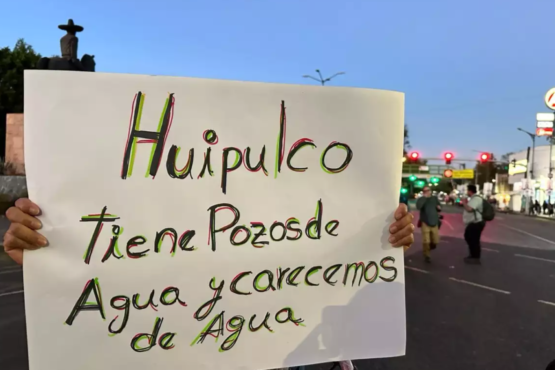 Huipulco
Tiene Pozos de
Agua y carecemos
de Agua